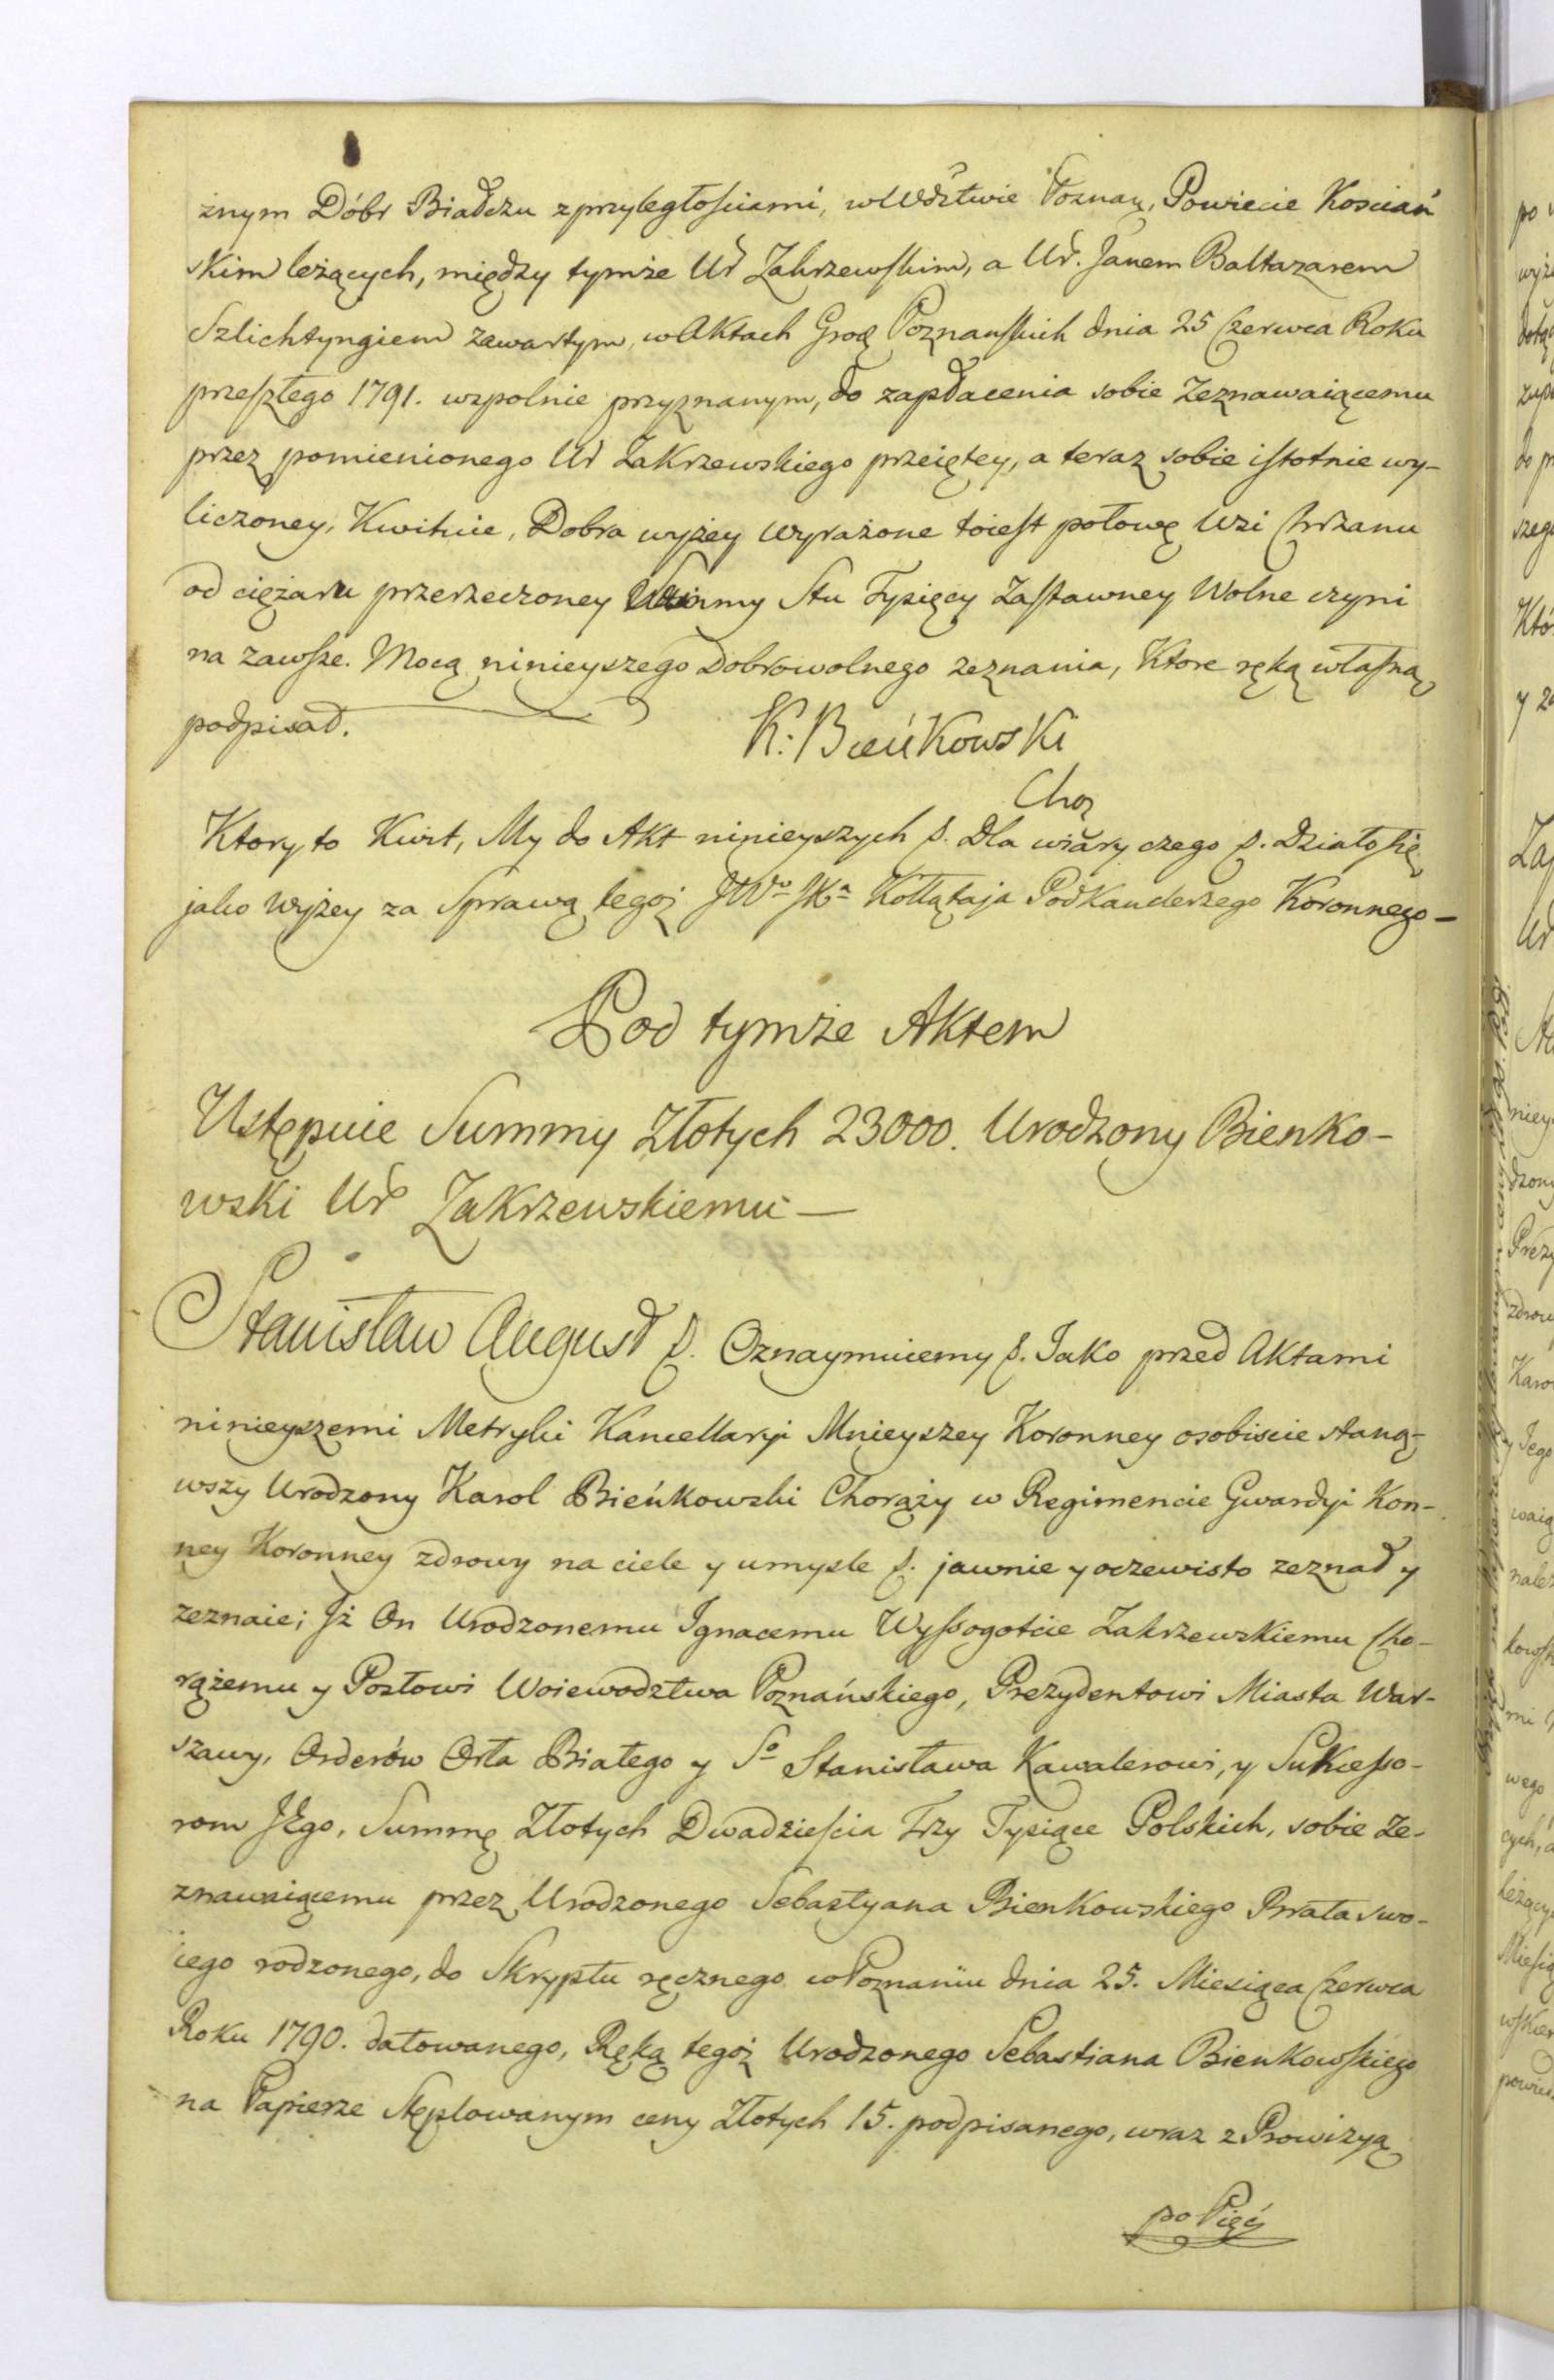 żnym Dóbr Białczu z przyległościami, w Wdztwie Poznań, Powiecie Kościań
skim leżących, między tymże Ur Zakrzewskim, a Ur. Janem Baltazarem
Szlichtyngiem zawartym, w Aktach Grod Poznańskich dnia 25 Czerwca Roku
przeszłego 1791. wspolnie przyznanym, do zapłacenia sobie Zeznawaiącemu
przez pomienionego Ur Zakrzewskiego przeiętey, a teraz sobie istotnie wy-
liczoney, Kwituie, Dobra wyżey wyrażone toiest połowę Wsi Chrzanu
od ciężaru przerzeczoney Summy Stu Tysięcy Zastawney Wolne czyni
na zawsze. Mocą ninieyszego Dobrowolnego zeznania, Ktore ręką własną
podpisał. K: Bieńkowski
Chor
Ktory to Kwit, My do Akt ninieyszych &. Dla wiary czego &. Działo się
jako wyżey za Sprawą tegoż JWo JKa Kołłątaja Podkanclerzego Koronnego —
Pod tymże Aktem
Ustępuie Summy Złotych 23000. Urodzony Bienko-
wski Ur Zakrzewskiemu —
Stanisław August &. Oznaymuiemy &. Jako przed Aktami
ninieyszemi Metryki Kancellaryi Mnieyszey Koronney osobiscie staną-
wszy Urodzony Karol Bieńkowski Chorąży w Regimencie Gwardyi Kon-
ney Koronney zdrowy na ciele y umysle &. jawnie y oczewisto zeznał y
zeznaie; Jż On Urodzonemu Ignacemu Wyssogotcie Zakrzewskiemu Cho-
rążemu y Posłowi Woiewodztwa Poznańskiego, Prezydentowi Miasta War-
szawy, Orderów Orła Białego y So Stanisława Kawalerowi, y Sukcesso-
rom JEgo, Summę Złotych Dwadzieścia Trzy Tysiące Polskich, sobie Ze-
znawaiącemu przez Urodzonego Sebastyana Bienkowskiego Brata swo-
iego rodzonego, do Skryptu ręcznego w Poznaniu dnia 25. Miesiąca Czerwca
Roku 1790. datowanego, Ręką tegoż Urodzonego Sebastiana Bienkowskiego
na Papierze Stęplowanym ceny Złotych 15. podpisanego, wraz z Prowizyą
po Pięć